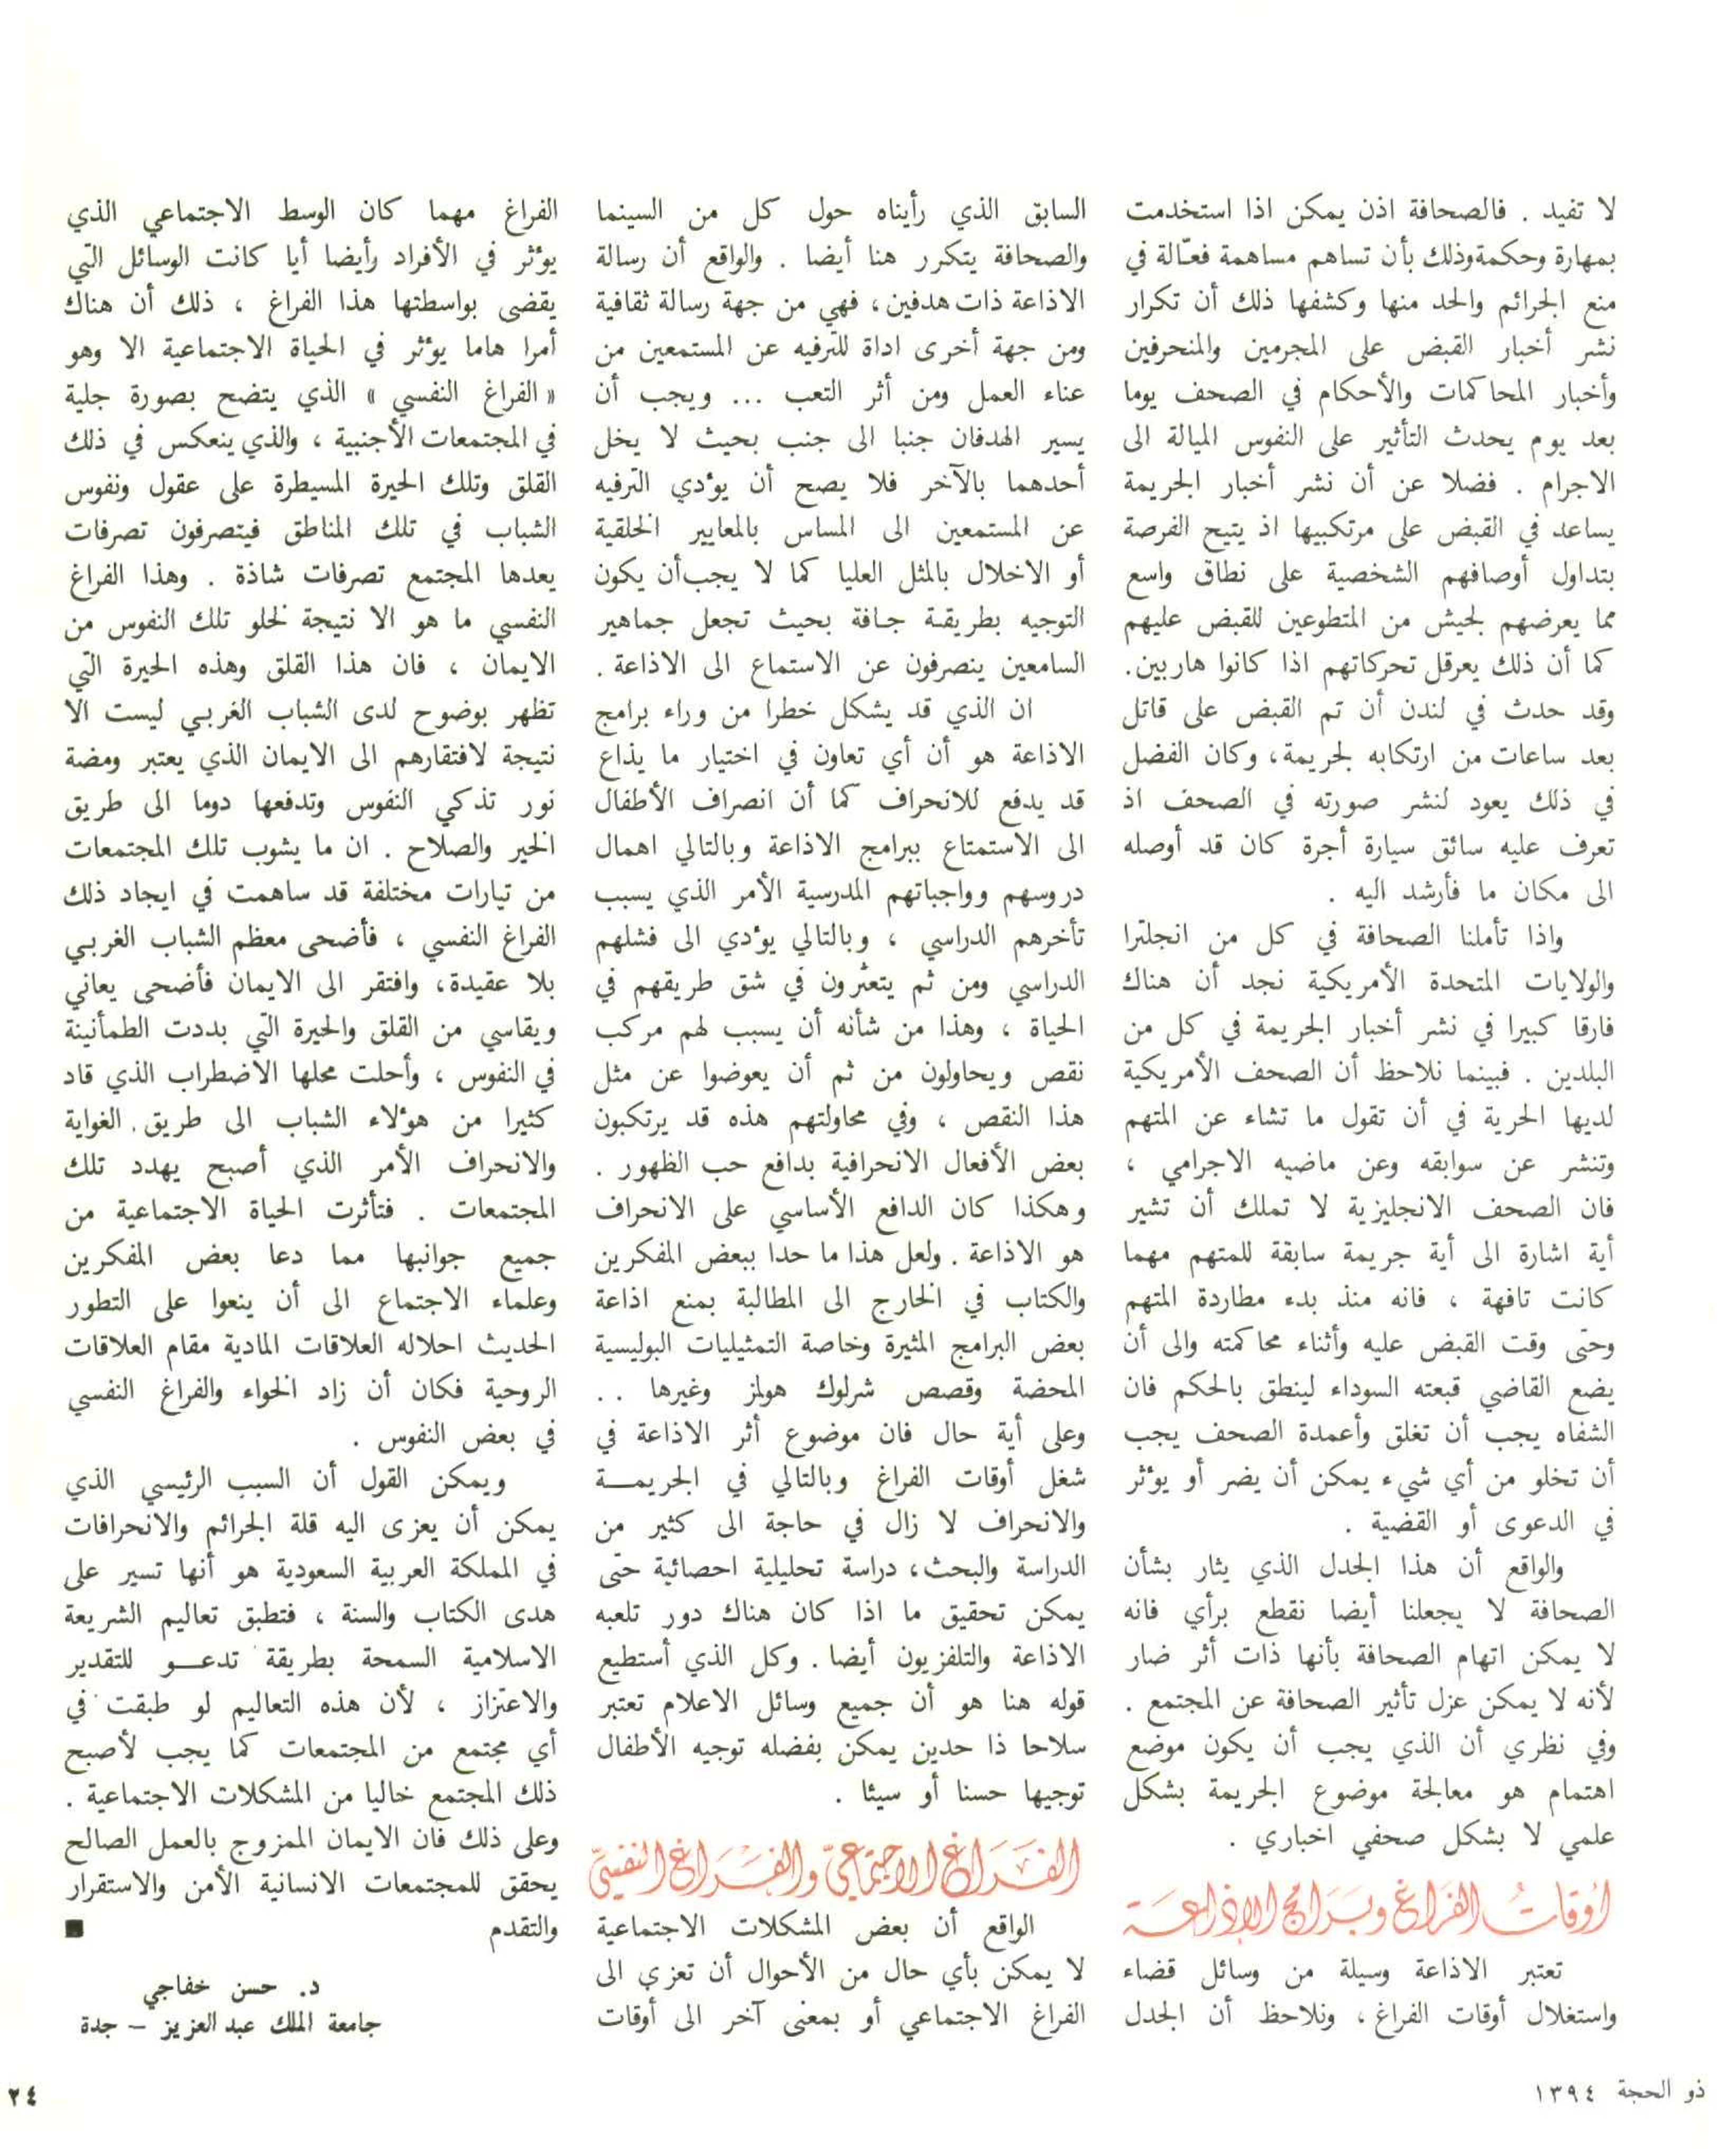 لا تفيد . فالصحافة اذن يمكن اذا استخدمت
بمهارة وحكمة وذلك بأن تساهم مساهمة فعّالة في
منع الجرائم والحد منها وكشفها ذلك أن تكرار
نشر أخبار القبض على المجرمين والمنحرفين
وأخبار المحاكمات والأحكام في الصحف يوما
بعد يوم يحدث التأثير على النفوس الميالة الى
الاجرام . فضلا عن أن نشر أخبار الجريمة
يساعد في القبض على مرتكبيها اذ يتيح الفرصة
بتداول أوصافهم الشخصية على نطاق واسع
مما يعرضهم لجيش من المتطوعين للقبض عليهم
كما أن ذلك يعرقل تحركاتهم اذا كانوا هاربين.
وقد حدث في لندن أن تم القبض على قاتل
بعد ساعات من ارتكابه لجريمة، وكان الفضل
في ذلك يعود لنشر صورته في الصحف اذ
تعرف عليه سائق سيارة أجرة كان قد أوصله
الى مكان ما فأرشد اليه .
واذا تأملنا الصحافة في كل من انجلترا
والولايات المتحدة الأمريكية نجد أن هناك
فارقا كبيرا في نشر أخبار الجريمة في كل من
البلدين . فبينما نلاحظ أن الصحف الأمريكية
لديها الحرية في أن تقول ما تشاء عن المتهم
وتنشر عن سوابقه وعن ماضيه الاجرامي ،
فان الصحف الانجليزية لا تملك أن تشير
أية اشارة الى أية جريمة سابقة للمتهم مهما
كانت تافهة ، فانه منذ بدء مطاردة المتهم
وحتى وقت القبض عليه وأثناء محاكمته والى أن
يضع القاضي قبعته السوداء لينطق بالحكم فان
الشفاه يجب أن تغلق وأعمدة الصحف يجب
أن تخلو من أي شيء يمكن أن يضر أو يؤثر
في الدعوى أو القضية .
والواقع أن هذا الجدل الذي يثار بشأن
الصحافة لا يجعلنا أيضا نقطع برأي فانه
لا يمكن اتهام الصحافة بأنها ذات أثر ضار
لأنه لا يمكن عزل تأثير الصحافة عن المجتمع .
وفي نظري أن الذي يجب أن يكون موضع
اهتمام هو معالجة موضوع الجريمة بشكل
علمي لا بشكل صحفي اخباري .
أوقات الفراغ وبرامج الإذاعة
تعتبر الاذاعة وسيلة من وسائل قضاء
واستغلال أوقات الفراغ، ونلاحظ أن الجدل
السابق الذي رأيناه حول كل من السينما
والصحافة يتكرر هنا أيضا . والواقع أن رسالة
الاذاعة ذات هدفين، فهي من جهة رسالة ثقافية
ومن جهة أخرى اداة للترفيه عن المستمعين من
عناء العمل ومن أثر التعب ... ويجب أن
يسير الهدفان جنبا الى جنب بحيث لا يخل
أحدهما بالآخر فلا يصح أن يؤدي الترفيه
عن المستمعين الى المساس بالمعايير الخلقية
أو الاخلال بالمثل العليا كما لا يجب أن يكون
التوجيه بطريقة جافة بحيث تجعل جماهير
السامعين ينصرفون عن الاستماع الى الاذاعة .
ان الذي قد يشكل خطرا من وراء برامج
الاذاعة هو أن أي تعاون في اختيار ما يذاع
قد يدفع للانحراف كما أن انصراف الأطفال
الى الاستمتاع ببرامج الاذاعة وبالتالي اهمال
دروسهم وواجباتهم المدرسية الأمر الذي يسبب
تأخرهم الدراسي ، وبالتالي يؤدي الى فشلهم
الدراسي ومن ثم يتعثّرون في شق طريقهم في
الحياة ، وهذا من شأنه أن يسبب لهم مركب
نقص ويحاولون من ثم أن يعوضوا عن مثل
هذا النقص ، وفي محاولتهم هذه قد يرتكبون
بعض الأفعال الانحرافية بدافع حب الظهور .
وهكذا كان الدافع الأساسي على الانحراف
هو الاذاعة . ولعل هذا ما حدا ببعض المفكرين
والكتاب في الخارج الى المطالبة بمنع اذاعة
بعض البرامج المثيرة وخاصة التمثيليات البوليسية
المحضة وقصص شرلوك هولمز وغيرها . .
وعلى أية حال فان موضوع أثر الاذاعة في
شغل أوقات الفراغ وبالتالي في الجريمـــة
والانحراف لا زال في حاجة الى كثير من
الدراسة والبحث، دراسة تحليلية احصائية حتى
يمكن تحقيق ما اذا كان هناك دور تلعبه
الاذاعة والتلفزيون أيضا . وكل الذي أستطيع
قوله هنا هو أن جميع وسائل الاعلام تعتبر
سلاحا ذا حدين يمكن بفضله توجيه الأطفال
توجيها حسنا أو سيئا .
الفراغ الاجتماعي والفراغ النفسي
الواقع أن بعض المشكلات الاجتماعية
لا يمكن بأي حال من الأحوال أن تعزي الى
الفراغ الاجتماعي أو بمعنى آخر الى أوقات
الفراغ مهما كان الوسط الاجتماعي الذي
يؤثر في الأفراد وأيضا أيا كانت الوسائل التي
يقضى بواسطتها هذا الفراغ ، ذلك أن هناك
أمرا هاما يؤثر في الحياة الاجتماعية الا وهو
« الفراغ النفسي » الذي يتضح بصورة جلية
في المجتمعات الأجنبية ، والذي ينعكس في ذلك
القلق وتلك الحيرة المسيطرة على عقول ونفوس
الشباب في تلك المناطق فيتصرفون تصرفات
يعدها المجتمع تصرفات شاذة . وهذا الفراغ
النفسي ما هو الا نتيجة لخلو تلك النفوس من
الايمان ، فان هذا القلق وهذه الحيرة التي
تظهر بوضوح لدى الشباب الغربي ليست الا
نتيجة لافتقارهم الى الايمان الذي يعتبر ومضة
نور تذكي النفوس وتدفعها دوما الى طريق
الخير والصلاح . ان ما يشوب تلك المجتمعات
من تيارات مختلفة قد ساهمت في ايجاد ذلك
الفراغ النفسي ، فأضحى معظم الشباب الغربي
بلا عقيدة، وافتقر الى الايمان فأضحى يعاني
ويقاسي من القلق والحيرة التي بددت الطمأنينة
في النفوس ، وأحلت محلها الاضطراب الذي قاد
كثيرا من هؤلاء الشباب الى طريق الغواية
والانحراف الأمر الذي أصبح يهدد تلك
المجتمعات . فتأثرت الحياة الاجتماعية من
جميع جوانبها مما دعا بعض المفكرين
وعلماء الاجتماع الى أن ينعوا على التطور
الحديث احلاله العلاقات المادية مقام العلاقات
الروحية فكان أن زاد الخواء والفراغ النفسي
في بعض النفوس .
ويمكن القول أن السبب الرئيسي الذي
يمكن أن يعزى اليه قلة الجرائم والانحرافات
في المملكة العربية السعودية هو أنها تسير على
هدى الكتاب والسنة ، فتطبق تعاليم الشريعة
الاسلامية السمحة بطريقة تدعـــو للتقدير
والاعتزاز ، لأن هذه التعاليم لو طبقت في
أي مجتمع من المجتمعات كما يجب لأصبح
ذلك المجتمع خاليا من المشكلات الاجتماعية .
وعلى ذلك فان الايمان الممزوج بالعمل الصالح
يحقق للمجتمعات الانسانية الأمن والاستقرار
والتقدم ■
د. حسن خفاجي
جامعة الملك عبد العزيز – جدة
ذو الحجة ١٣٩٤
٢٤